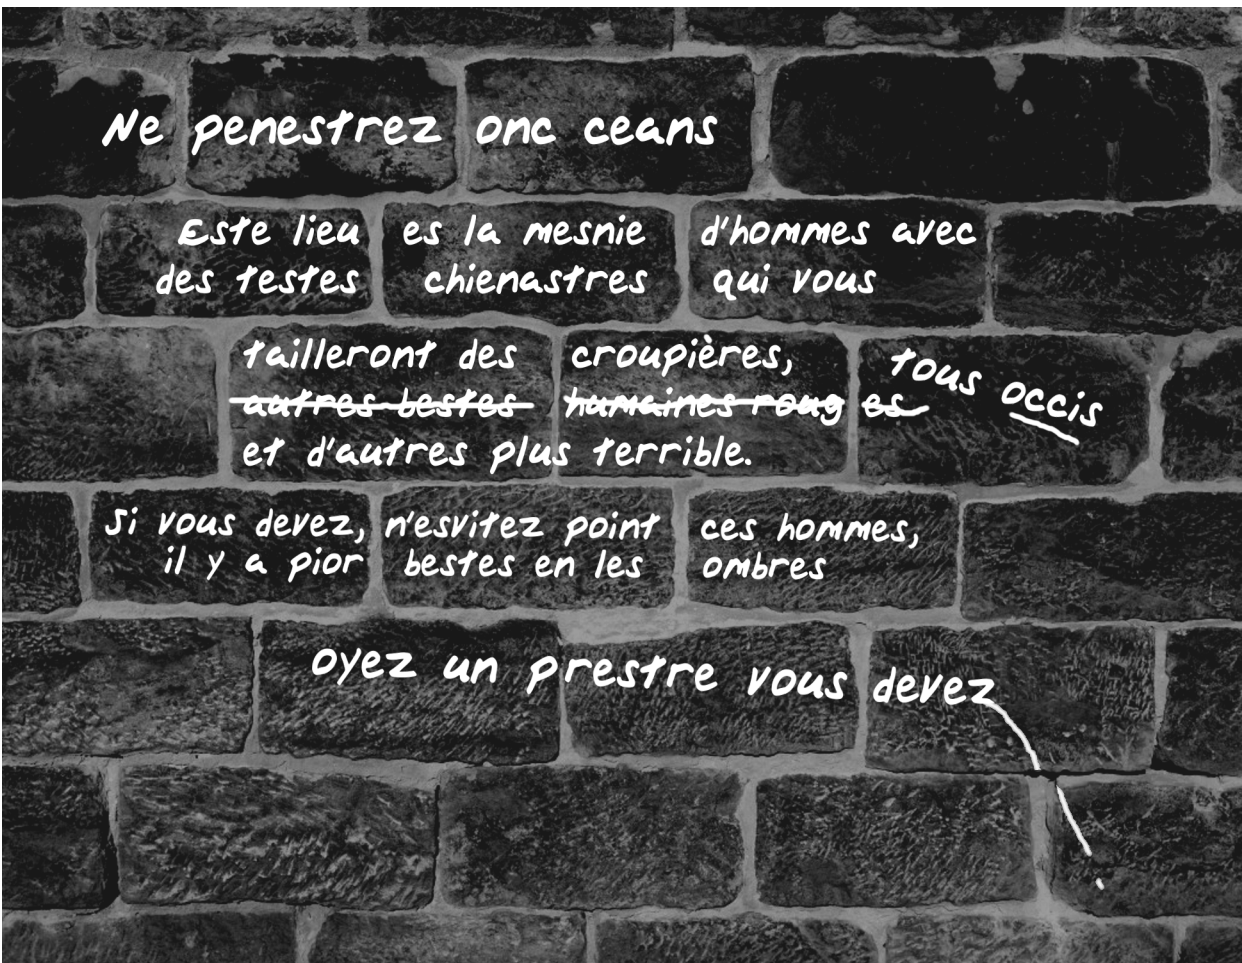 Ne penestrez onc ceans
Este lieu es la mesnie d'hommes avec
des testes chienastres qui vous
tailleront des croupières,
autres bestes humaines roug es
tous occis
et d'autres plus terrible.
Si vous devez, n'esvitez point ces hommes,
il y a pior bestes en les ombres
oyez un prestre vous devez